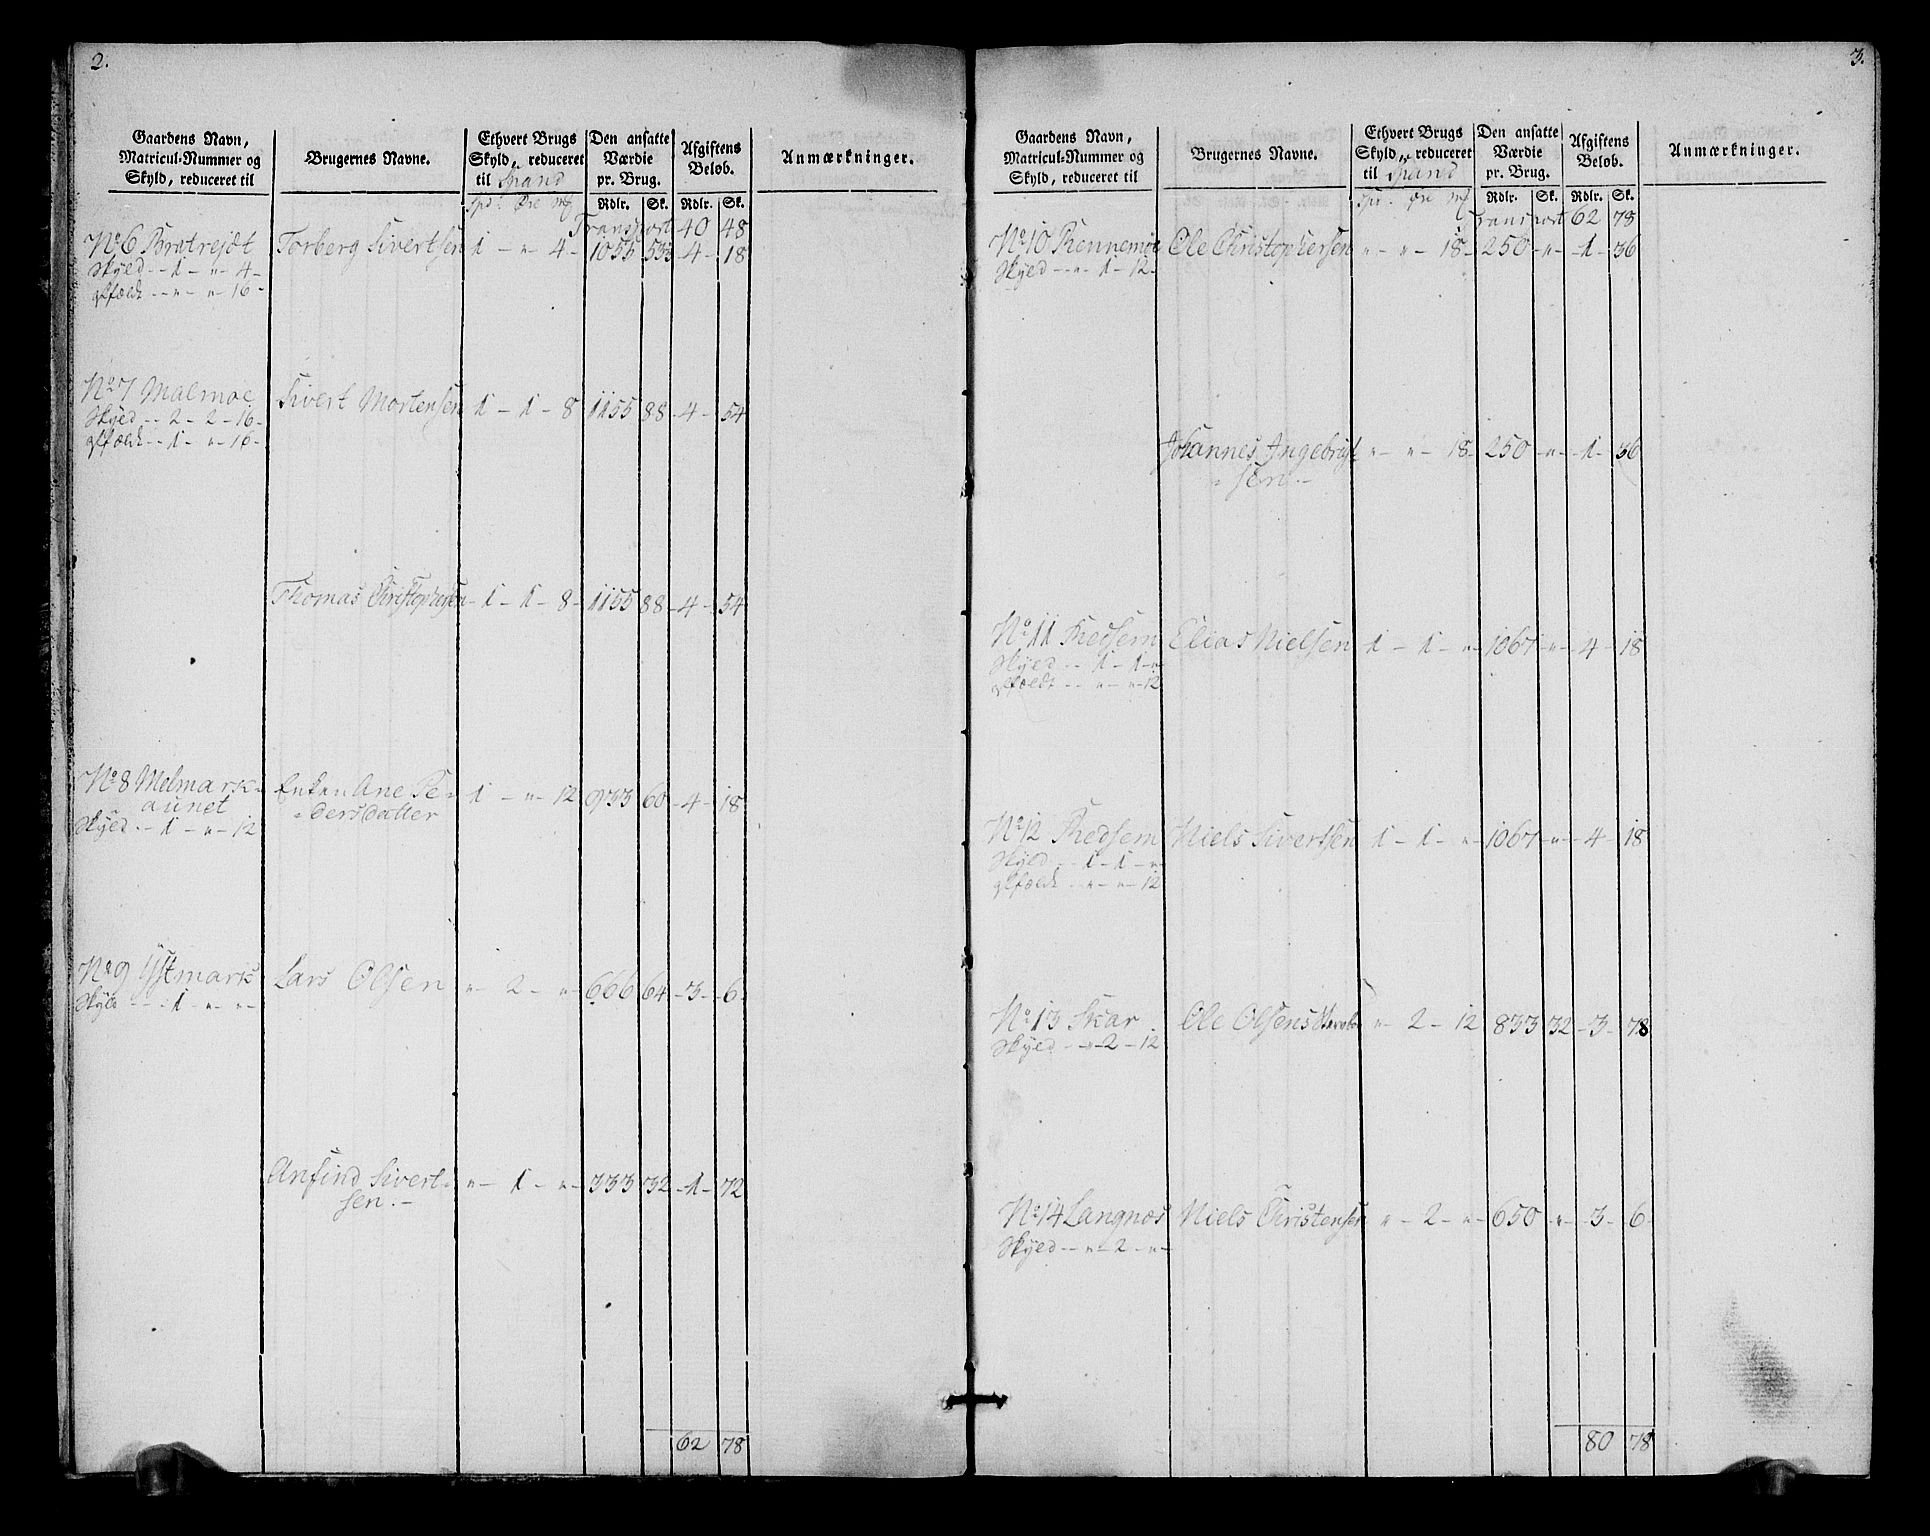 2.
Gaardens Navn, Matricul-Nummer og Skyld, reduceret til
Brugernes Navne.
Ethvert Brugs Skyld, reduceret til Spand
Den ansatte Værdie pr. Brug.
Afgiftens Beløb.
Anmærkninger.
Rdlr. Sk. Rdlr. Sk.
Transport 40 48
No 6 Bratrejdt Torberg Sivertsen 1 - " 4 - 1055 53 - 4 - 18
Skyld - 1 - " - 4 -
- " - " - 16 -
No 7 Malmoe Sivert Mortensen 1 - 1 - 8 1155 88 - 4 - 54
Skyld - 2 - 2 - 16 -
- 1 - " - 16 -
Thomas Christophersen - 1 - 1 - 8 - 1155 88 - 4 - 54
No 8 Melmark- Enken Ane Pe- 1 - " - 12 933 60 - 4 - 18 -
aunet dersdatter
Skyld - 1 - " - 12
No 9 Ystmark Lars Olsen " - 2 - " - 666 64 - 3 - 6 -
Skyld - 1 - " - "
Anfind Sivert- " - 1 - " - 333 32 - 1 - 72
sen. -
62 78
3.
Gaardens Navn, Matricul-Nummer og Skyld, reduceret til
Brugernes Navne.
Ethvert Brugs Skyld, reduceret til Spand
Den ansatte Værdie pr. Brug.
Afgiftens Beløb.
Anmærkninger.
Rdlr. Sk. Rdlr. Sk.
Transport 62 78
No 10 Rennemoe Ole Christophersen " - " - 18 - 250 - " - 1 - 36
Skyld - " - 1 - 12 -
Johannes Ingebrigt " - " - 18 - 250 - " - 1 - 36
- sen -
No 11 Redsem Elias Nielsen 1 - 1 - " - 1067 - " - 4 - 18
Skyld - 1 - 1 - "
- " - " - 12
No 12 Redsem Niels Sivertsen 1 - 1 - " - 1067 - " - 4 - 18
Skyld - 1 - 1 - "
- " - " - 12
No 13 Skar Ole Olsens " - 2 - 12 833 32 - 3 - 78
Skyld - " - 2 - 12
No 14 Langnæs Niels Christensen " - 2 - " - 650 " - 3 - 6 -
Skyld - " - 2 - "
80 78